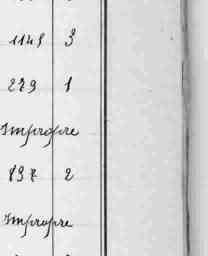 1149 3
279 1
Impropre
897 2
Impropre